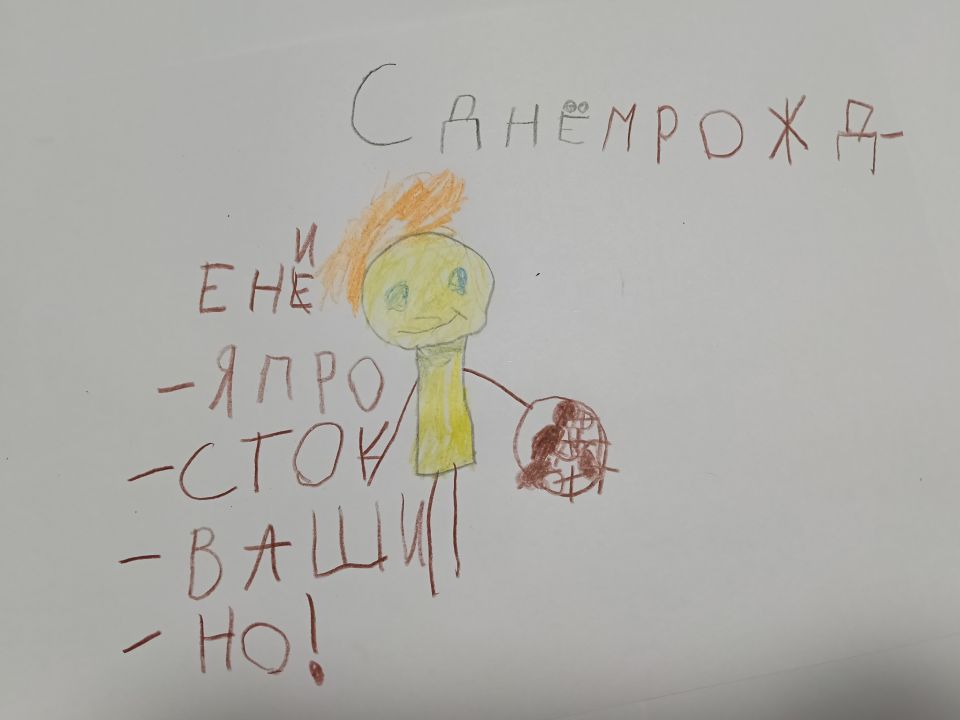 С ДНЁМ РОЖД-
ЕНИЕ
- Я ПРО
- СТОК
- ВАШИ
- НО!